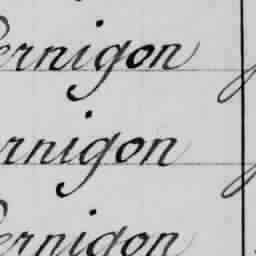 ernigon
rnigon
ernigon